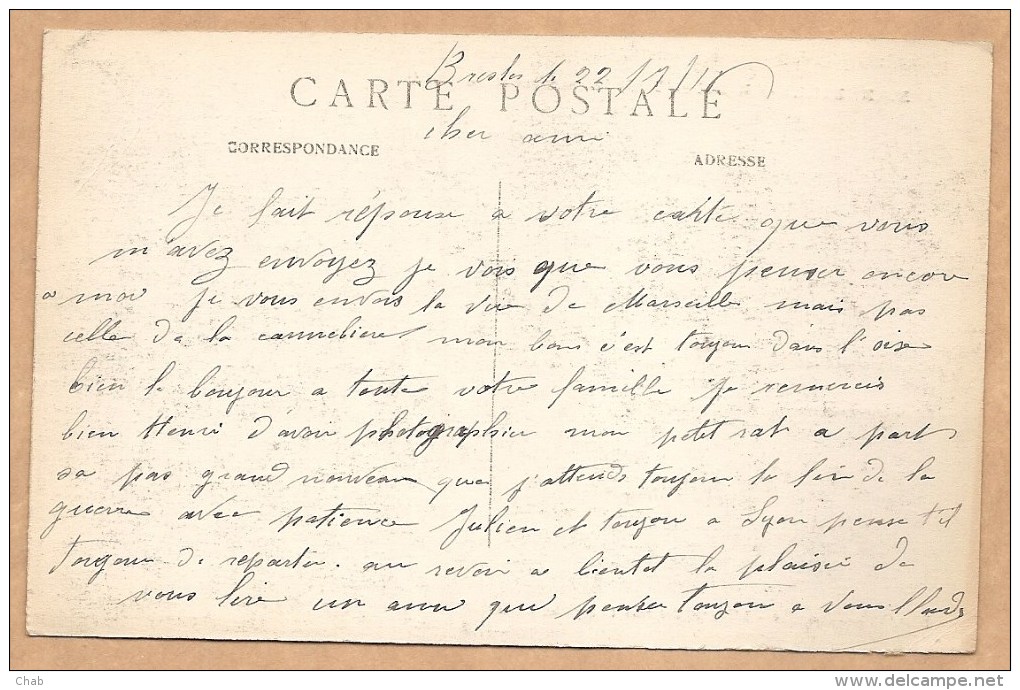 Bresles le 22/7/15
CARTE POSTALE
cher ami
CORRESPONDANCE
ADRESSE
Je fait réponse a votre carte que vous
m'avez envoyez je vois que vous penser encore
a moi je vous envois la vue de Marseille mais pas
celle de la cannebiere mon bons c'est toujour dans l'oise
bien le bonjour a toute votre famille Je remercis
bien Henri d'avoir photographier mon petit rat a part
sa pas grand nouveau que j'attends toujour la fin de la
guerre avec patience Julien et toujou a Lyon pense t'il
toujour de repartir. au revoir a bientot le plaisir de
vous lire un ami qui pense toujou a vous
Chab
www.delcampe.net